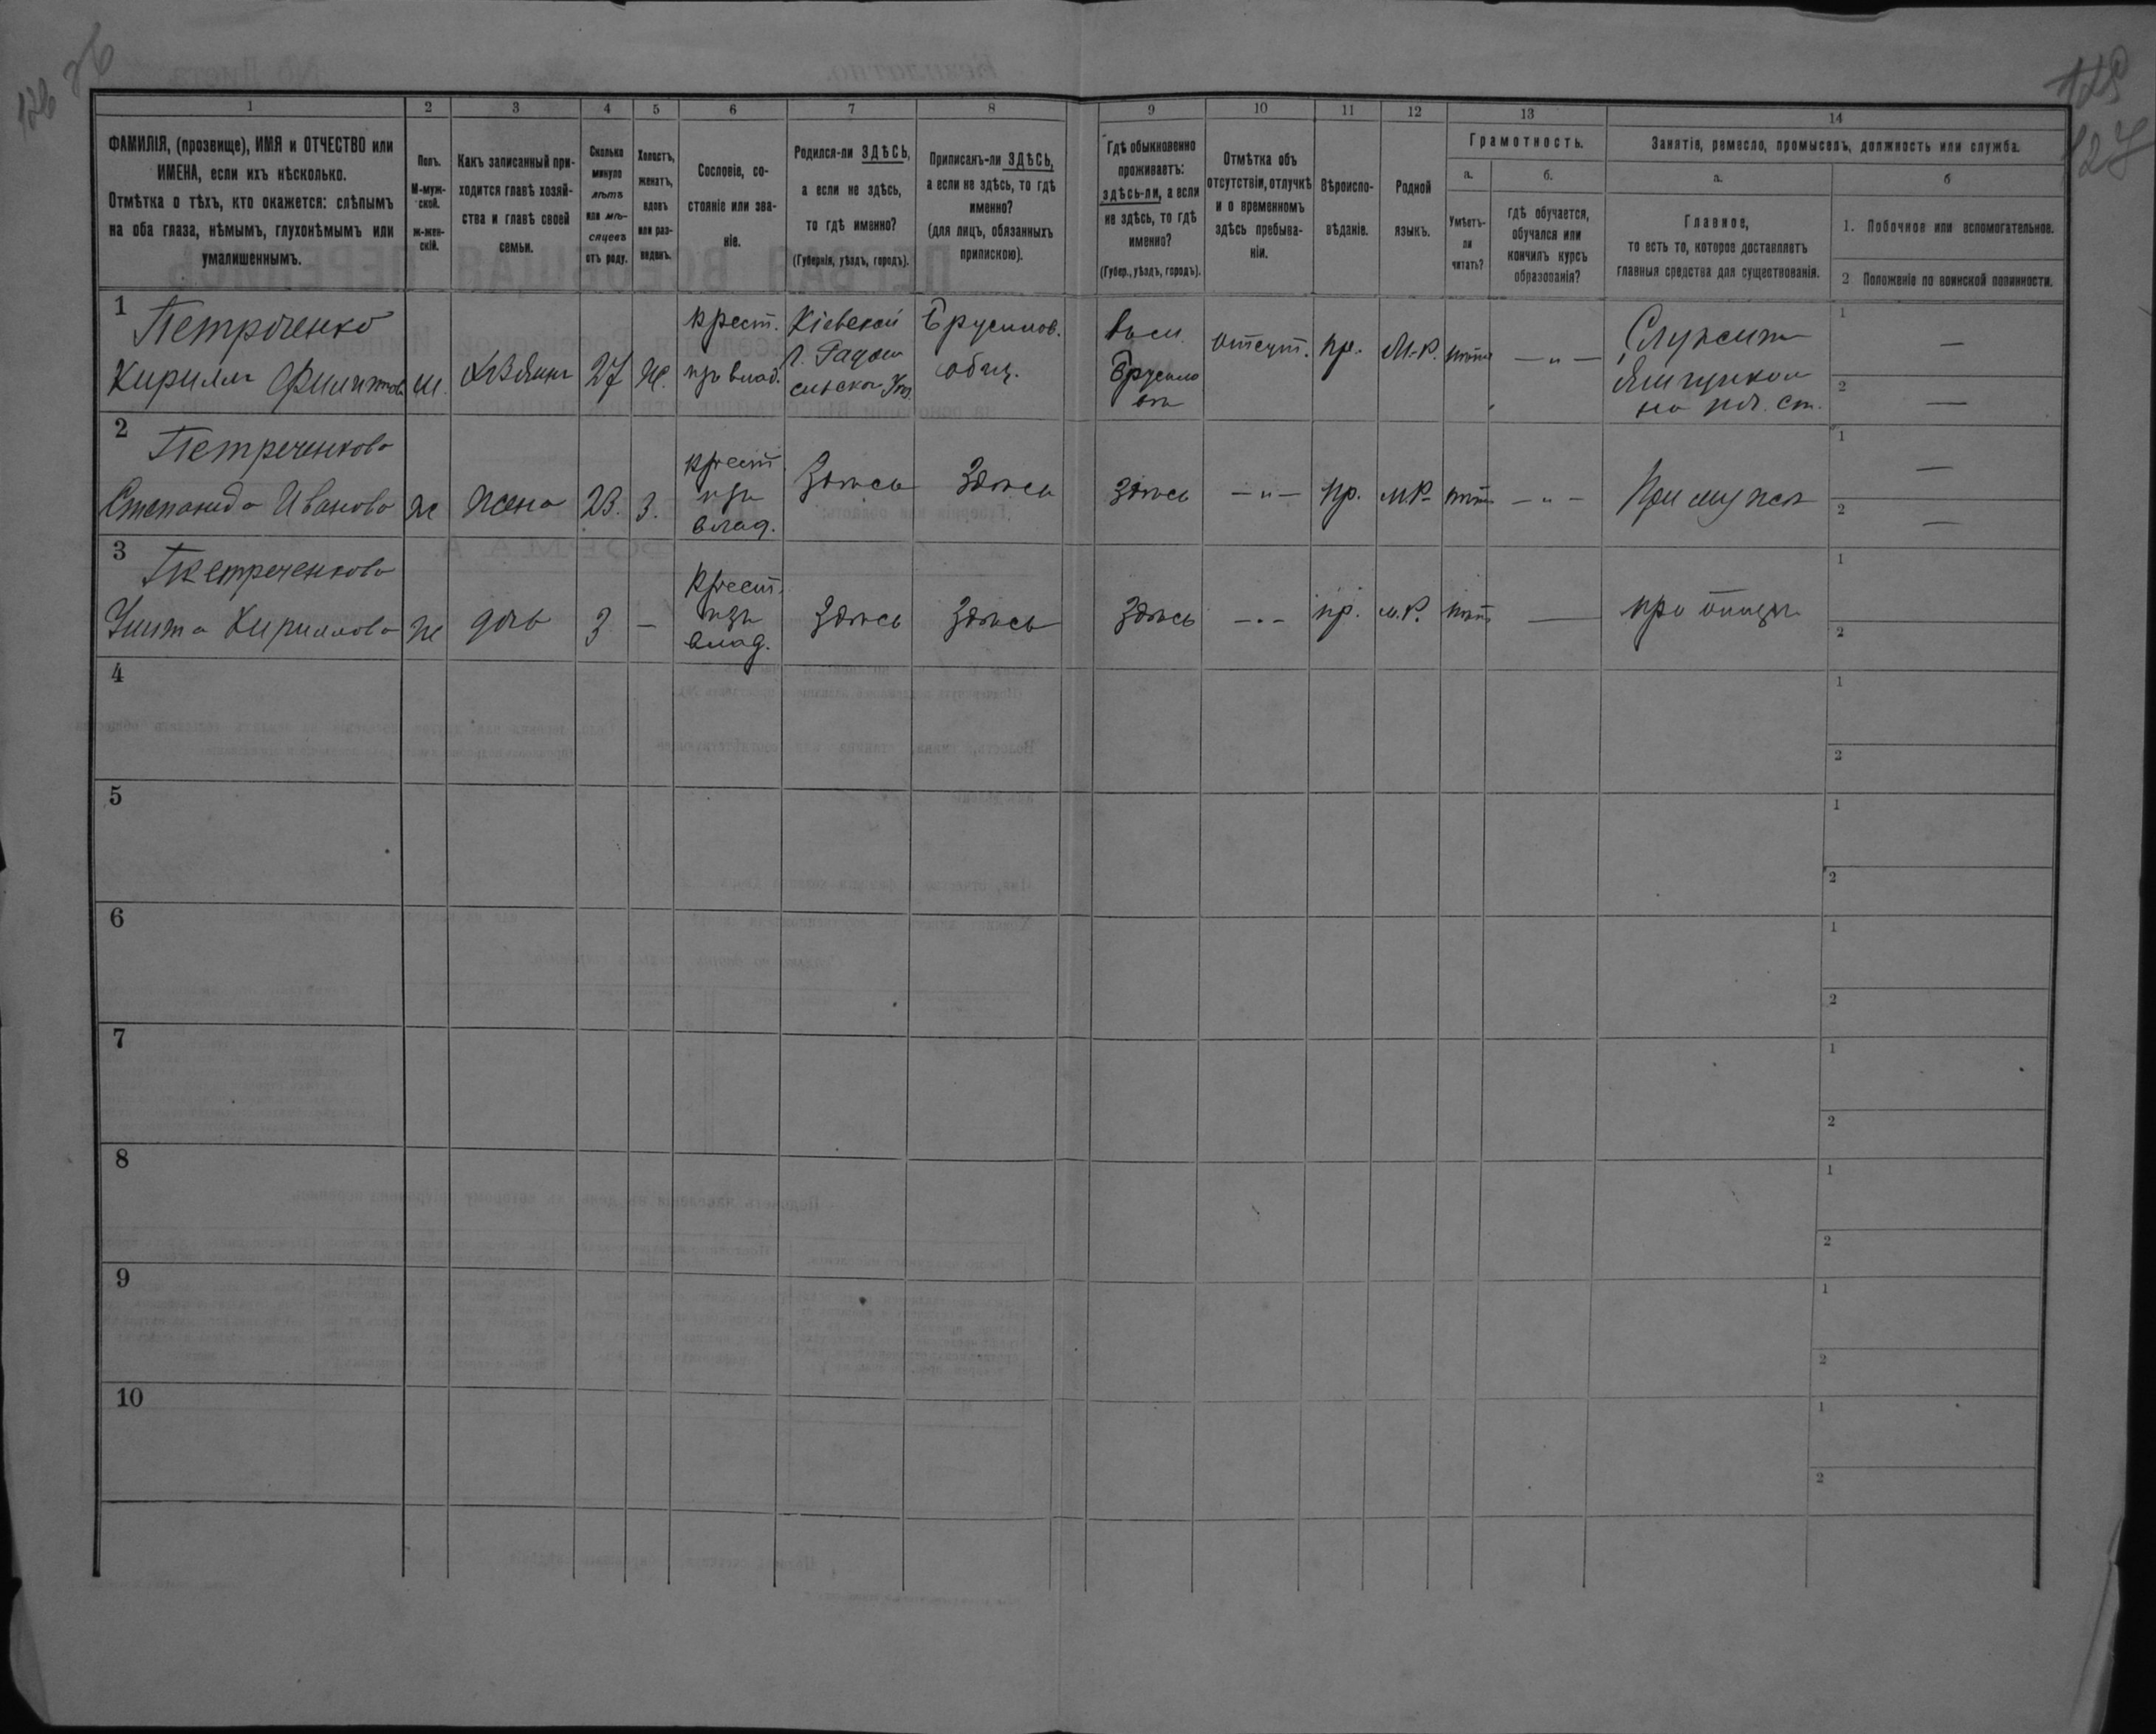 126
125
127
1 2 3 4 5 6 7 8 9 10 11 12 13 14
ФАМИЛІЯ, (прозвище), ИМЯ и ОТЧЕСТВО или
ИМЕНА, если ихъ нѣсколько.
Отмѣтка о тѣхъ, кто окажется: слѣпымъ
на оба глаза, нѣмымъ, глухонѣмымъ или
умалишеннымъ.
Полъ.
М-муж-
ской.
ж-жен-
скій.
Какъ записанный при-
ходится главѣ хозяй-
ства и главѣ своей
семьи.
Сколько
минуло
лѣтъ
или мѣ-
сяцевъ
отъ роду.
Холостъ,
женатъ,
вдовъ
или раз-
веденъ.
Сословіе, со-
стояніе или зва-
ніе.
Родился-ли ЗДѢСЬ,
а если не здѣсь,
то гдѣ именно?
(Губернія, уѣздъ, городъ).
Приписанъ-ли ЗДѢСЬ,
а если не здѣсь, то гдѣ
именно?
(для лицъ, обязанныхъ
припискою).
Гдѣ обыкновенно
проживаетъ:
здѣсь-ли, а если
не здѣсь, то гдѣ
именно?
(Губер., уѣздъ, городъ).
Отмѣтка объ
отсутствіи, отлучкѣ
и о временномъ
здѣсь пребыва-
ніи.
Вѣроиспо-
вѣданіе.
Родной
языкъ.
Грамотность.
а.
Умѣетъ-
ли
читать?
б.
гдѣ обучается,
обучался или
кончилъ курсъ
образованія?
Занятія, ремесло, промыселъ, должность или служба.
а.
Главное,
то есть то, которое доставляетъ
главныя средства для существованія.
б
1. Побочное или вспомогательное.
2 Положеніе по воинской повинности.
1
Петроченко
Кирилъ Филиповъ
м.
хозяинъ
27
ж.
крест.
изъ влад.
Кіевской
г. Радом
сльскаго Уѣз.
Брусилов.
общ.
въ м.
Брусило
вѣ
отсут.
пр.
М.-Р.
нѣтъ
— „ —
Служитъ
Ямщикомъ
на поч. ст.
1 —
2 —
2
Петреченкова
Степанида Иванова
ж
жена
23.
З.
крест
изъ
влад.
Здѣсь
Здѣсь
здѣсь
— „ —
пр.
м Р-
нѣтъ
— „ —
При мужѣ
1 —
2 —
3
Петреченкова
Улита Кирилова
ж
дочь
3
—
Крест.
изъ
влад.
Здѣсь
Здѣсь
Здѣсь
— „ —
пр.
м.Р.
нѣтъ
—
при отцѣ
1
2
4
1
2
5
1
2
6
1
2
7
1
2
8
1
2
9
1
2
10
1
2